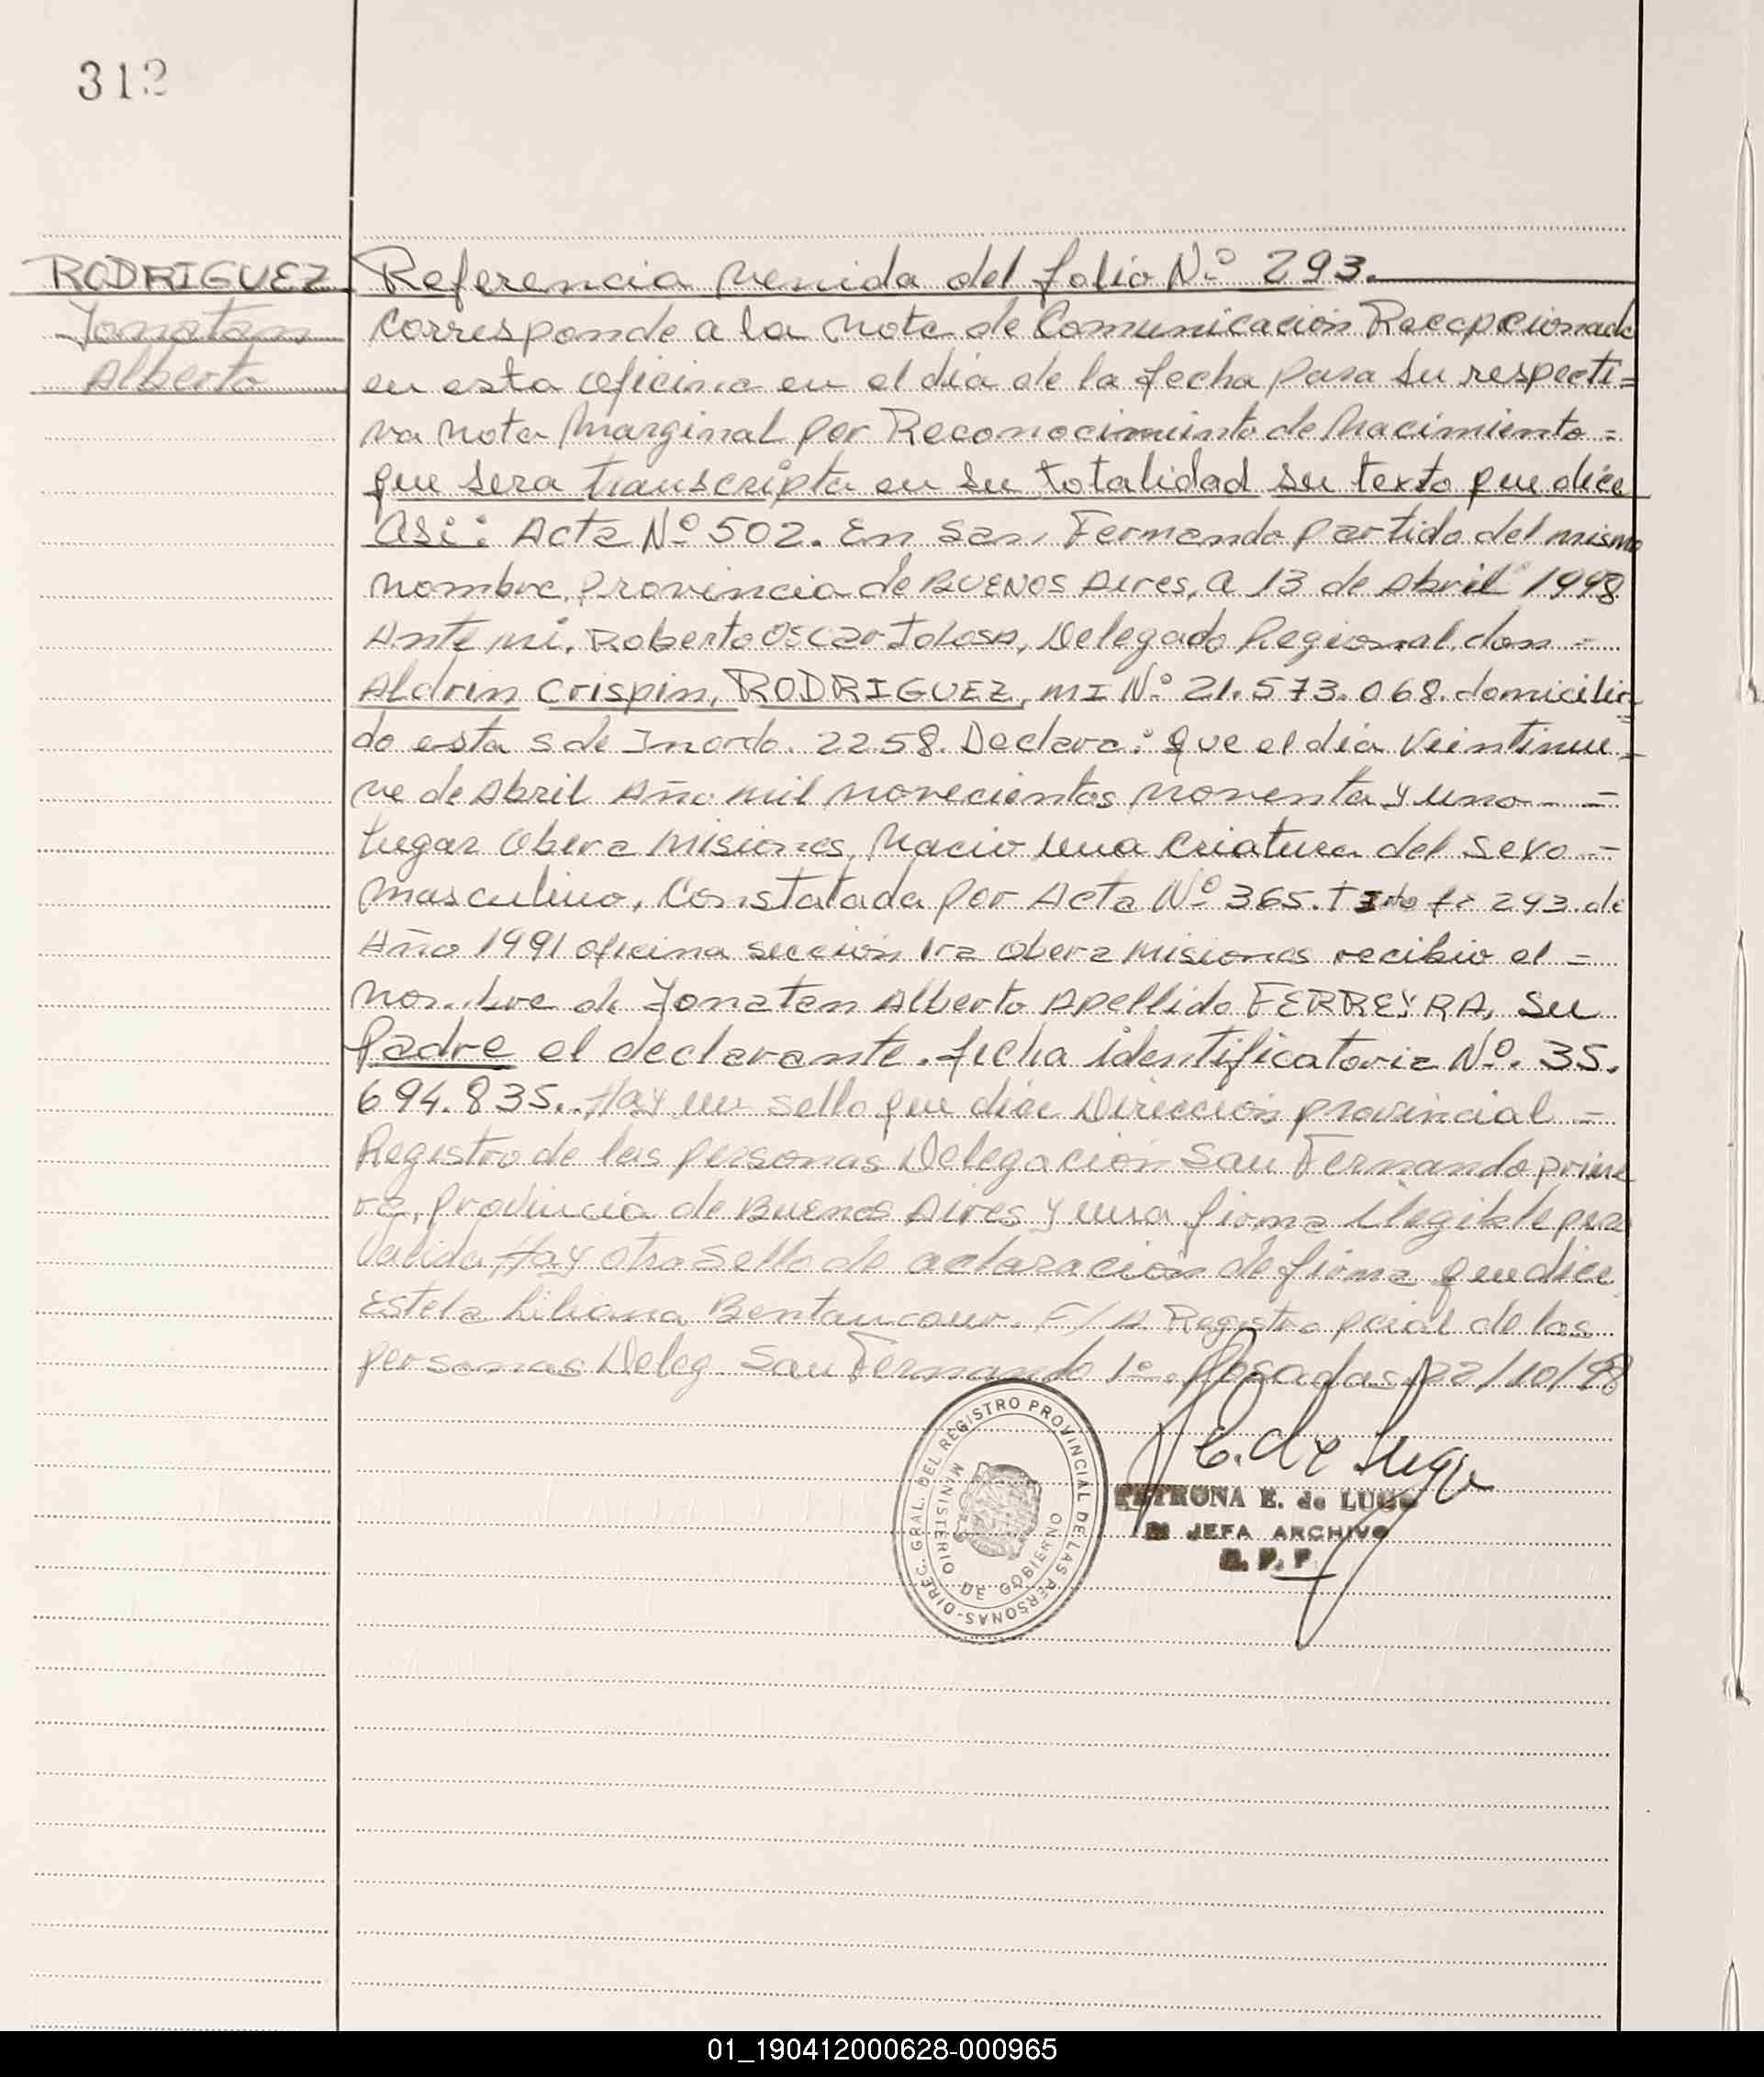 312
RODRIGUEZ
Jonatan
Alberto
Referencia venida del folio Nº 293.
Corresponde a la Nota de Comunicación Recepcionada
en esta oficina en el dia de la fecha para su respecti=
va nota Marginal por Reconocimiento de Nacimiento =
que sera transcripta en su totalidad su texto que dice
Asi: Acta Nº 502. En San Fernando partido del mismo
nombre, provincia de BUENOS Aires, a 13 de Abril 1998
Ante mi, Roberto Oscar Tolosa, Delegado Regional, don =
Aldrin Crispin, RODRIGUEZ, MI Nº 21.573.068. domicilia
do esta S de 2258. Declara: que el dia Veintinue=
ve de Abril Año mil novecientos noventa y uno - =
Lugar Obera Misiones, Nacio una Criatura del sexo =
Masculino, Constatada por Acta Nº 365. fº 293. de
Año 1991 oficina sección 1ra Obera Misiones recibio el =
nombre de Jonatan Alberto Apellido FERREYRA, Su
Padre el declarante. ficha identificatoria Nº. 35.
694.835. Hay un sello que dice Dirección provincial =
Registro de las personas Delegación San Fernando prime
ra, provincia de Buenos Aires y una firma ilegible pero
Valida, Hay otro Sello de aclaración de firma que dice
Estela Liliana Bentancour. F/A Registro pcial de las
personas Deleg. San Fernando 1º. Posadas, 22/10/98
DIREC. GRAL. DEL REGISTRO PROVINCIAL DE LAS PERSONAS
MINISTERIO DE GOBIERNO
E. de Lugo
PETRONA E. de LUGO
JEFA ARCHIVO
R. P. P.
01_190412000628-000965